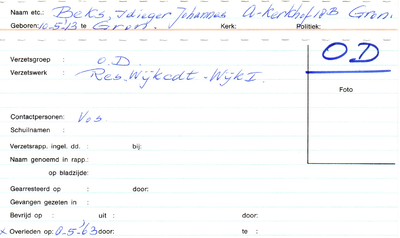 Naam etc.: Beks, Idinger Johannes A-Kerkhof 10B Gron.
Geboren: 10-5-'13 te Gron. Kerk: Politiek:
O.D
Verzetsgroep : O.D
Verzetswerk : Res. Wijkcdt - Wijk I.
Foto
Contactpersonen: Vos.
Schuilnamen :
Verzetsrapp. ingel. dd. : bij:
Naam genoemd in rapp.:
op bladzijde:
Gearresteerd op : door:
Gevangen gezeten in :
Bevrijd op : uit : door:
x Overleden op: 0-5-'63 door: te :